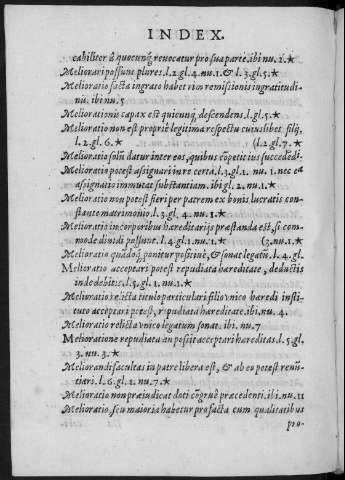 INDEX.
cabiliter & quocunq; reuocatur pro sua parte. ibi nu. 2. ★
Meliorari possunt plures. l. 2. gl. 4. nu. 1. & l. 3. gl. 5. ★
Melioratio facta ingrato habet vim remissionis ingratitudi
nu. ibi nu. 5
Meliorationis capax est quicunq; descendens, l. gl. 5. ★
Melioratio non est propriè legitima respectu cuiuslibet filij,
l. 2. gl. 6. ★ (l. 2. gl. 7. ★
Melioratio solũ datur inter eos, quibus cõpetit ius succededi
Melioratio potest assignari in re certa. l. 3. gl. 1. nu. 1. nec ea
assignatio immutat substantiam. ibi gl. 2. nu. 1. ★
Melioratio non potest fieri per patrem ex bonis lucratis con
stante matrimonio. l. 3. gl. 4. nu. 1. ★
Melioratio in corporibus hæreditarijs præstanda est, si com
mode diuidi possunt. l. 4. gl. 1. nu. 1. ★ (3. nu. 1. ★
Melioratio quãdoq; ponitur positiuè, & sonat legatũ. l. 4. gl.
Melioratio acceptari potest repudiata hæreditate, deductis
inde debitis. l. 5. gl. 1. nu. 1. ★
Melioratio relicta titulo particulari filio vnico hæredi insti
tuto acceptari potest, repudiata hæreditate. ibi nu. 4.
Melioratio relicta vnico legatum sonat. ibi nu. 7
Melioratione repudiata an possit acceptari hæreditas. l. 5. gl.
3. nu. 3. ★
Meliorandi facultas in patre libera est, & ab eo potest renũ
tiari. l. 6. gl. 2. nu. 7. ★
Melioratio non præiudicat doti cõgruè præcedenti. ibi nu. 11
Melioratio, seu maioria habetur pro facta cum qualitatibus
pro-